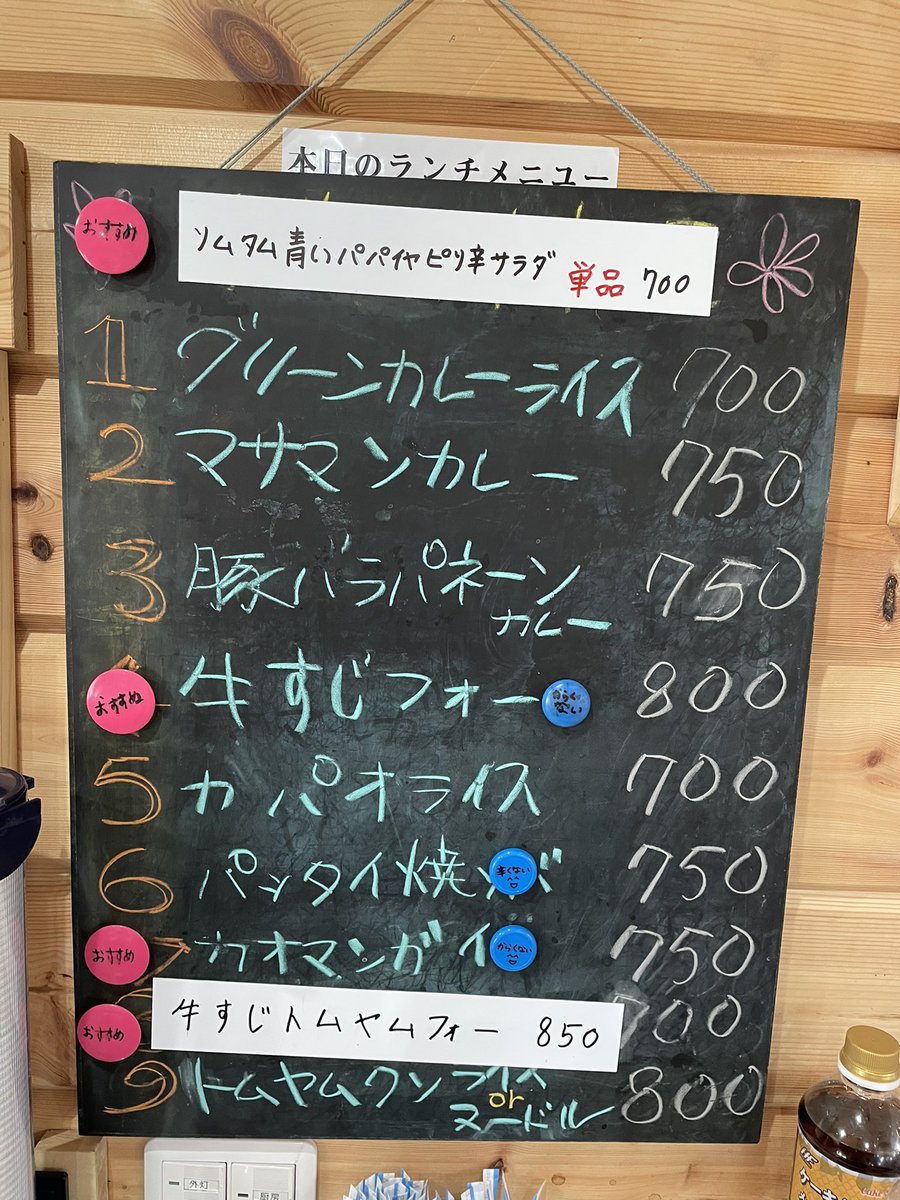 本日のランチメニュー
おすすめ
ソムタム青いパパイヤピリ辛サラダ 単品 700
1 グリーンカレーライス 700
2 マサマンカレー 750
3 豚バラパネーン 750
カレー
おすすめ 牛すじフォー からくない 800
5 カパオライス 700
6 パッタイ焼ソバ 辛くない 750
おすすめ 7 カオマンガイ からくない 750
おすすめ 牛すじトムヤムフォー 850
9 トムヤムクン ライス or ヌードル 800
外灯
厨房
ケーキ